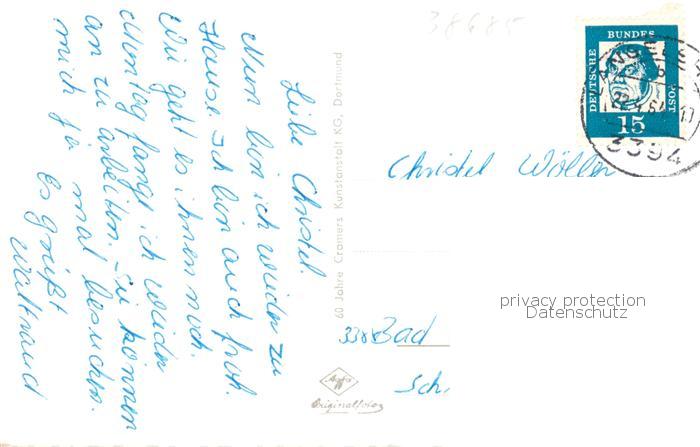 38685
Liebe Christel.
Nun bin ich wieder zu
Hause. Ich bin auch froh.
Wie geht es ihnen noch.
Montag fange ich wieder
an zu arbeiten. Sie können
mich ja mal besuchen.
Es grüßt
Waltraud
60 Jahre Cramers Kunstanstalt KG, Dortmund
DEUTSCHE BUNDESPOST
15
LANGELS
3394
Christel Wöller
338 Bad
Sch.
Agfa
Originalfoto
privacy protection
Datenschutz